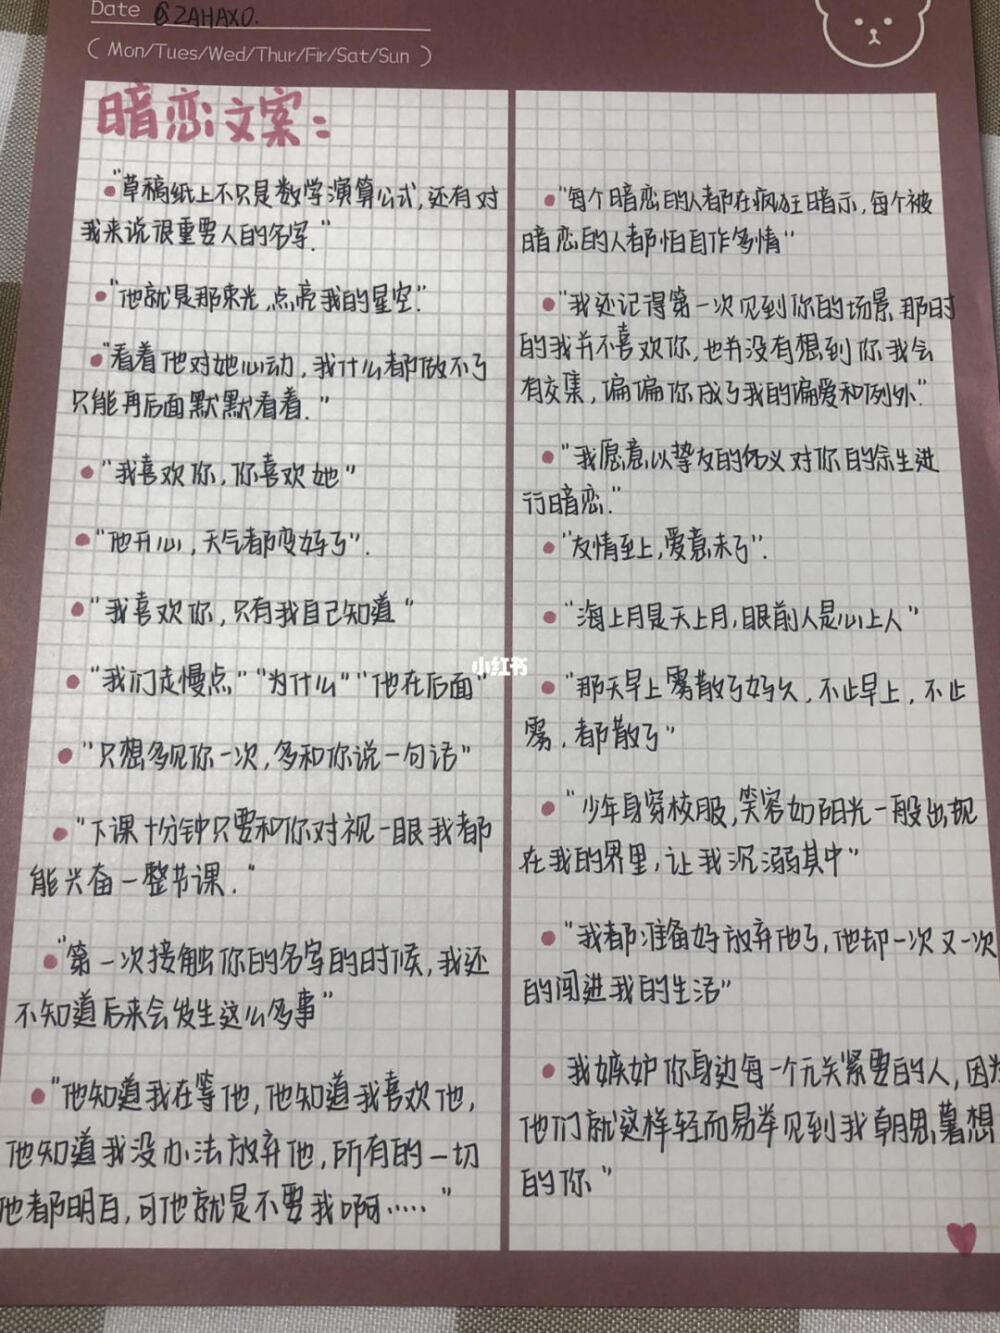 Date @ZAHAXO.
( Mon/Tues/Wed/Thur/Fir/Sat/Sun )
暗恋文案：
"草稿纸上不只是数学演算公式，还有对
我来说很重要人的名字."
"他就是那束光，点亮我的星空."
"看着他对她心动，我什么都做不了
只能再后面默默看着."
"我喜欢你，你喜欢她"
"他开心，天气都变好了".
"我喜欢你，只有我自己知道"
"我们走慢点""为什么""他在后面"
"只想多见你一次，多和你说一句话"
"下课十分钟只要和你对视一眼我都
能兴奋一整节课."
"第一次接触你的名字的时候，我还
不知道后来会发生这么多事"
"他知道我在等他，他知道我喜欢他，
他知道我没办法放弃他，所有的一切
他都明白，可他就是不要我啊……"
"每个暗恋的人都在疯狂暗示，每个被
暗恋的人都怕自作多情"
"我还记得第一次见到你的场景，那时
的我并不喜欢你，也并没有想到你我会
有交集，偏偏你成了我的偏爱和例外."
"我愿意以挚友的名义对你的余生进
行暗恋."
"友情至上，爱意未了".
"海上月是天上月，眼前人是心上人"
"那天早上雾散了好久，不止早上，不止
雾，都散了"
"少年身穿校服，笑容如阳光一般出现
在我的界里，让我沉溺其中"
"我都准备好放弃他了，他却一次又一次
的闯进我的生活"
我嫉妒你身边每一个无关紧要的人，因为
他们就这样轻而易举见到我朝思暮想
的你"
小红书